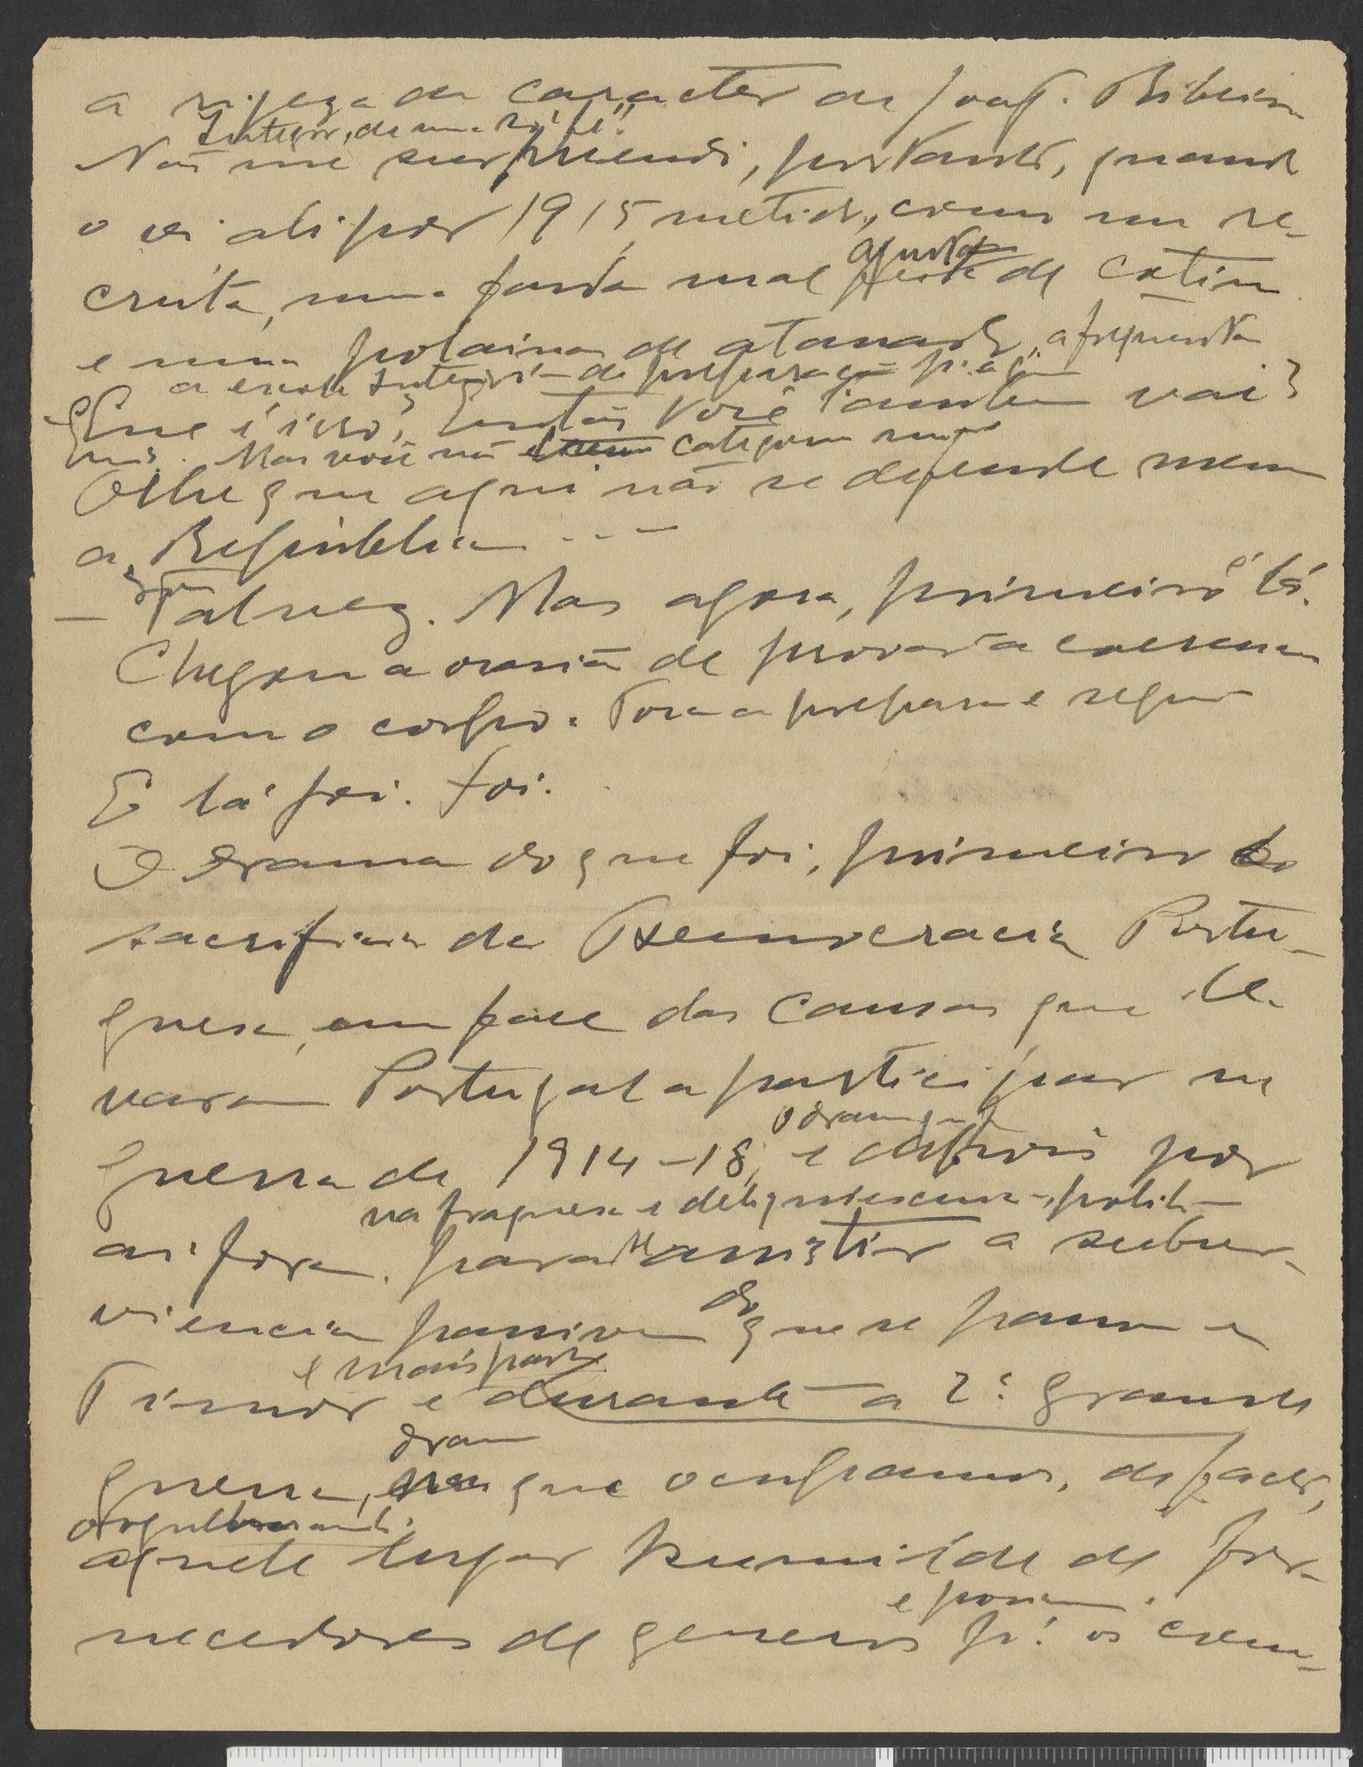 a rijeza de caracter de Joaq. Ribeiro
Inteiro, de uma só
Não me surpreendi, portanto, quando
o vi ali por 1915, metido, como um re-
cruta, numa farda mal ajustada de cotim
e numas polainas de atanado, a frequentar
a escola de preparação
Que é isso? Então você tambem vai?
Mas você não categoria
Olhe que aqui não se defende nem
a Republica ...
— Talvez. Mas agora, primeiro é lá.
Chegou a ocasião de provar a coerencia
com o corpo. Toca a preparar e seguir
E lá foi. Foi.
O drama do que foi, primeiro o
sacrificio da Democracia Portu-
guesa, em face das causas que le-
varam Portugal a participar na
guerra de 1914-18, e depois por
o drama
na fraqueza e deliquescencia polit
aí fora, para assistir a subser-
viencia passiva do que se passou em
e mais
Timor e durante a 2ª grande
drama
guerra, em que ocupamos, de facto,
orgulhosamente
aquele lugar humilde de for-
necedores de generos pª os
e